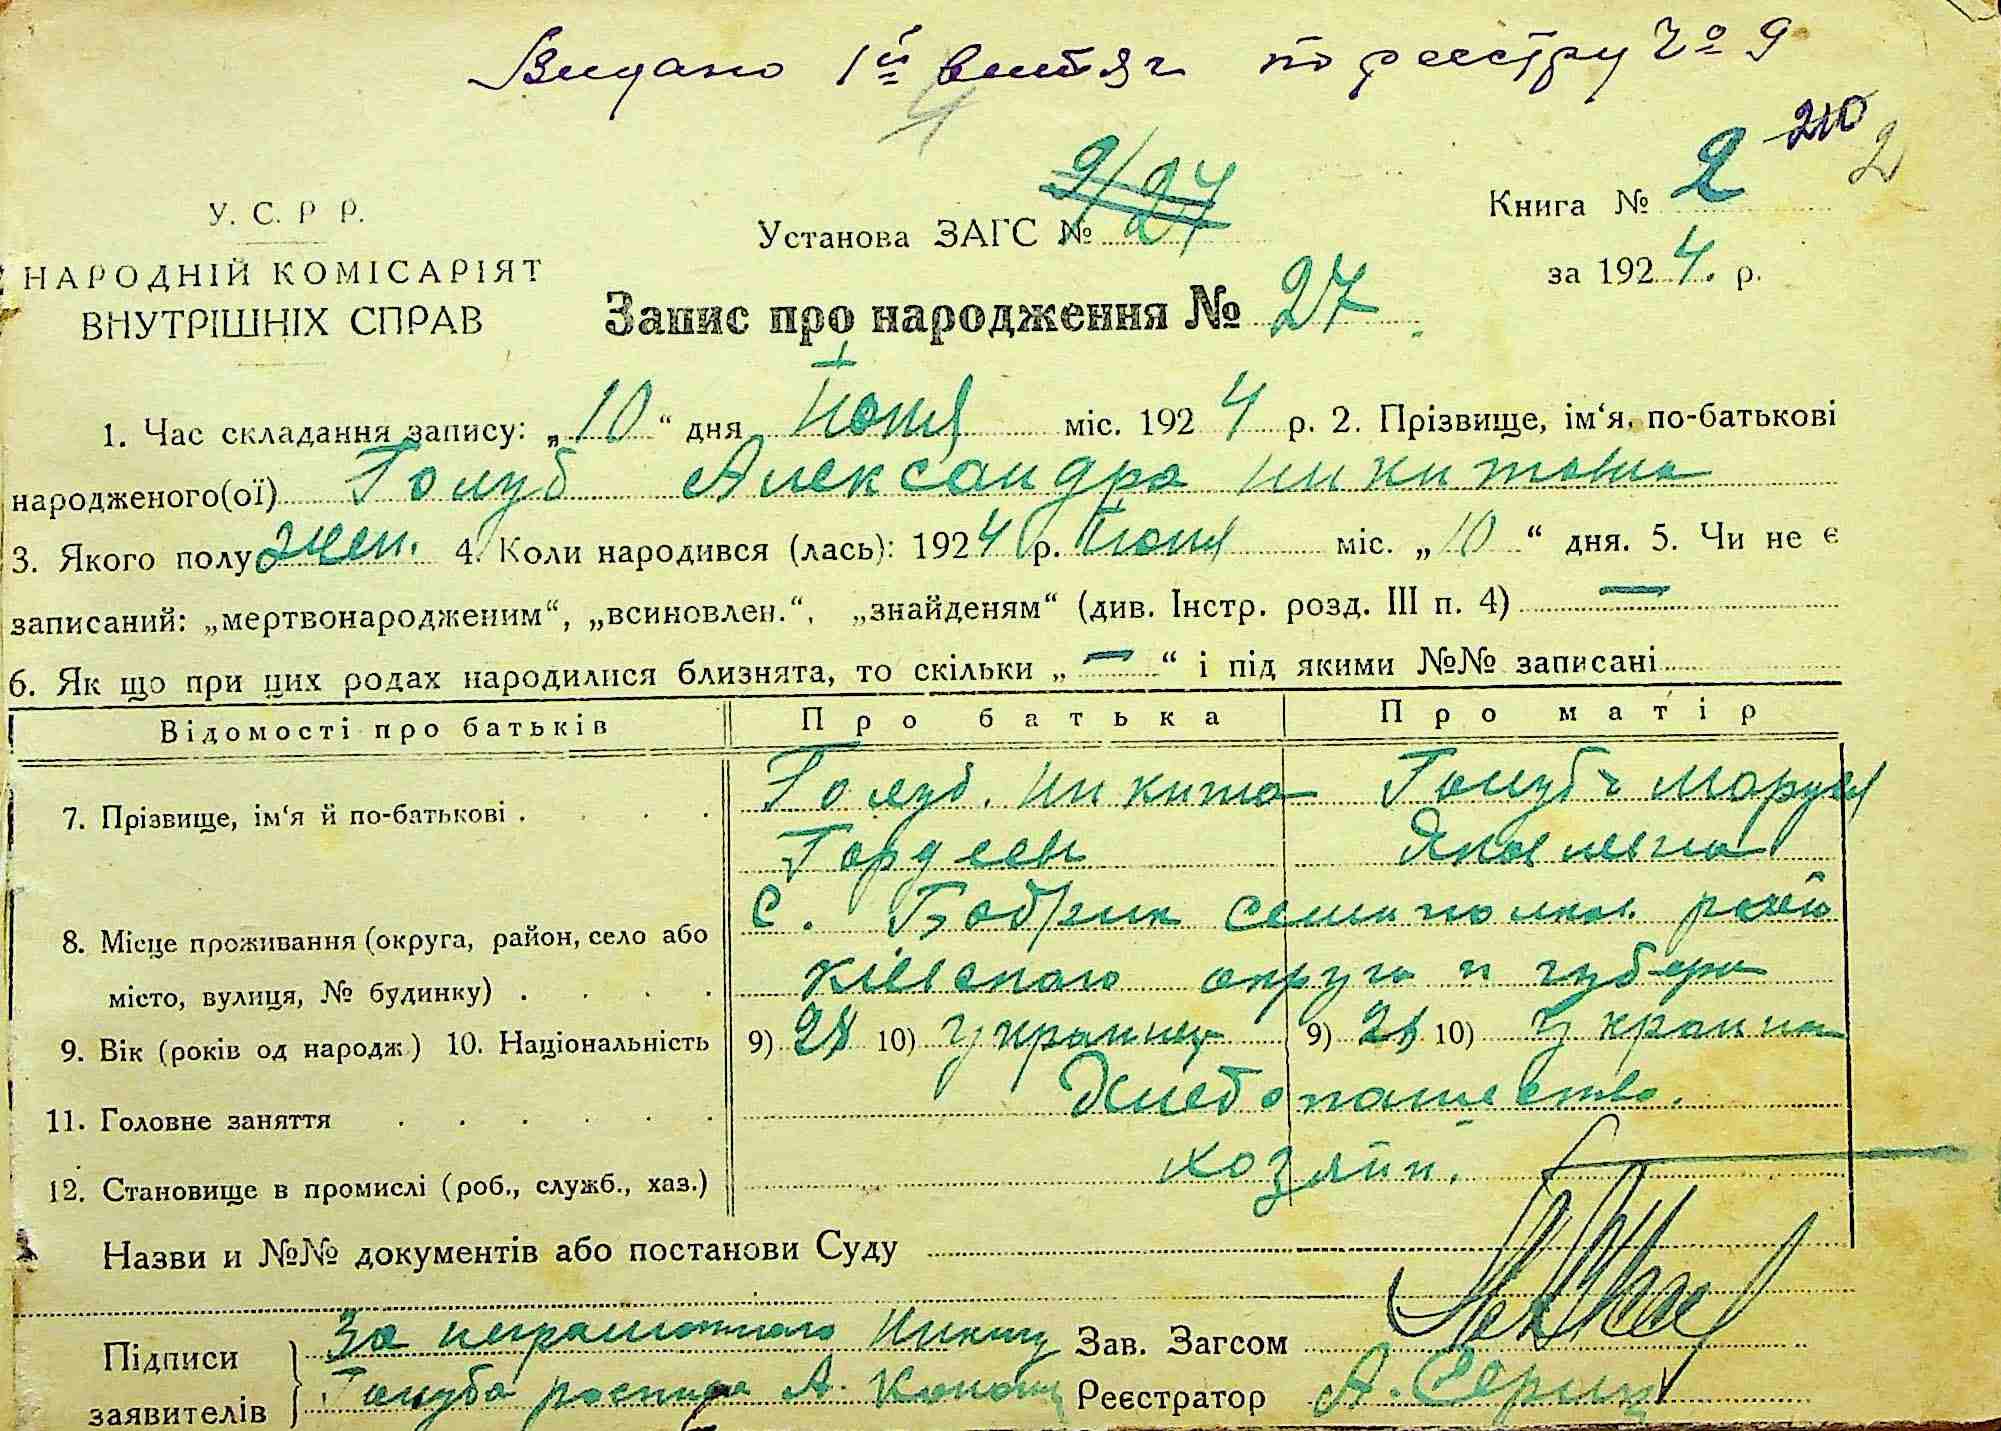 Видано 1й витяг по реєстру № 9
4
210
2
У. С. Р Р.
НАРОДНІЙ КОМІСАРІЯТ
ВНУТРІШНІХ СПРАВ
Установа ЗАГС № 2/27
Книга № 2
за 1924. р.
Запис про народження № 27
1. Час складання запису: „10“ дня Июня міс. 1924 р. 2. Прізвище, ім‘я, по-батькові
народженого(ої) Голуб Александра Никитовна
3. Якого полу жен. 4. Коли народився (лась): 1924 р. Июня міс. „10“ дня. 5. Чи не є
записаний: „мертвонародженим“, „всиновлен.“, „знайденям“ (див. Інстр. розд. III п. 4) —
6. Як що при цих родах народилися близнята, то скільки „—“ і під якими №№ записані
Відомості про батьків Про батька Про матір
7. Прізвище, ім‘я й по-батькові Голуб Никита Голуб Маруся
Гордеев Яковлевна
8. Місце проживання (округа, район, село або С. Бобрик Семиполков. район
місто, вулиця, № будинку) округа и губерн
9. Вік (років од народж.) 10. Національність 9) 28 10) Украинец 9) 28 10) Украинка
11. Головне заняття Хлебопашество.
12. Становище в промислі (роб., служб., хаз.) хозяин.
Назви и №№ документів або постанови Суду
Підписи За неграмотного Никиту Зав. Загсом
заявителів Голуба А. Реєстратор А.